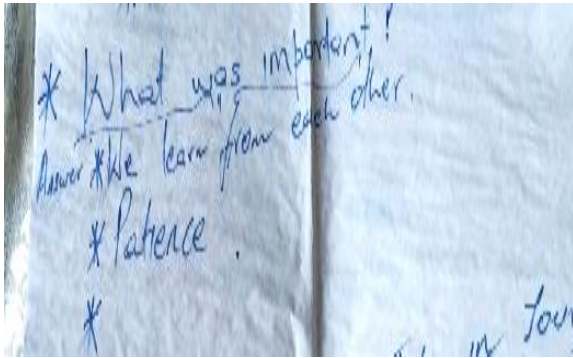 * What was important?
Answer * We learn from each other.
* Patience.
*
in